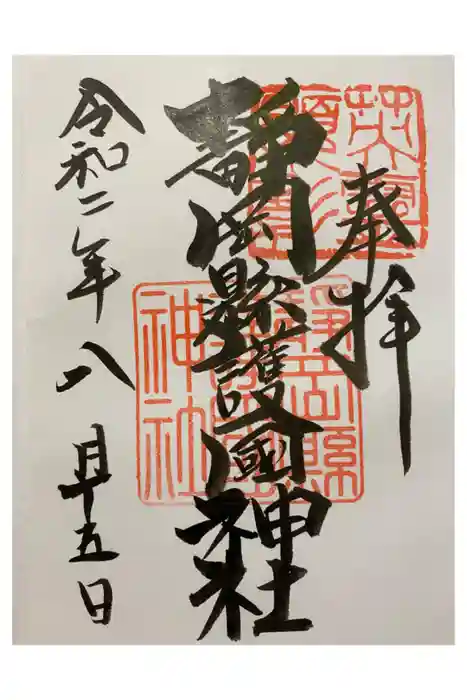 奉拝
靜岡縣護國神社
令和二年八月十五日
靜岡縣
護國
神社